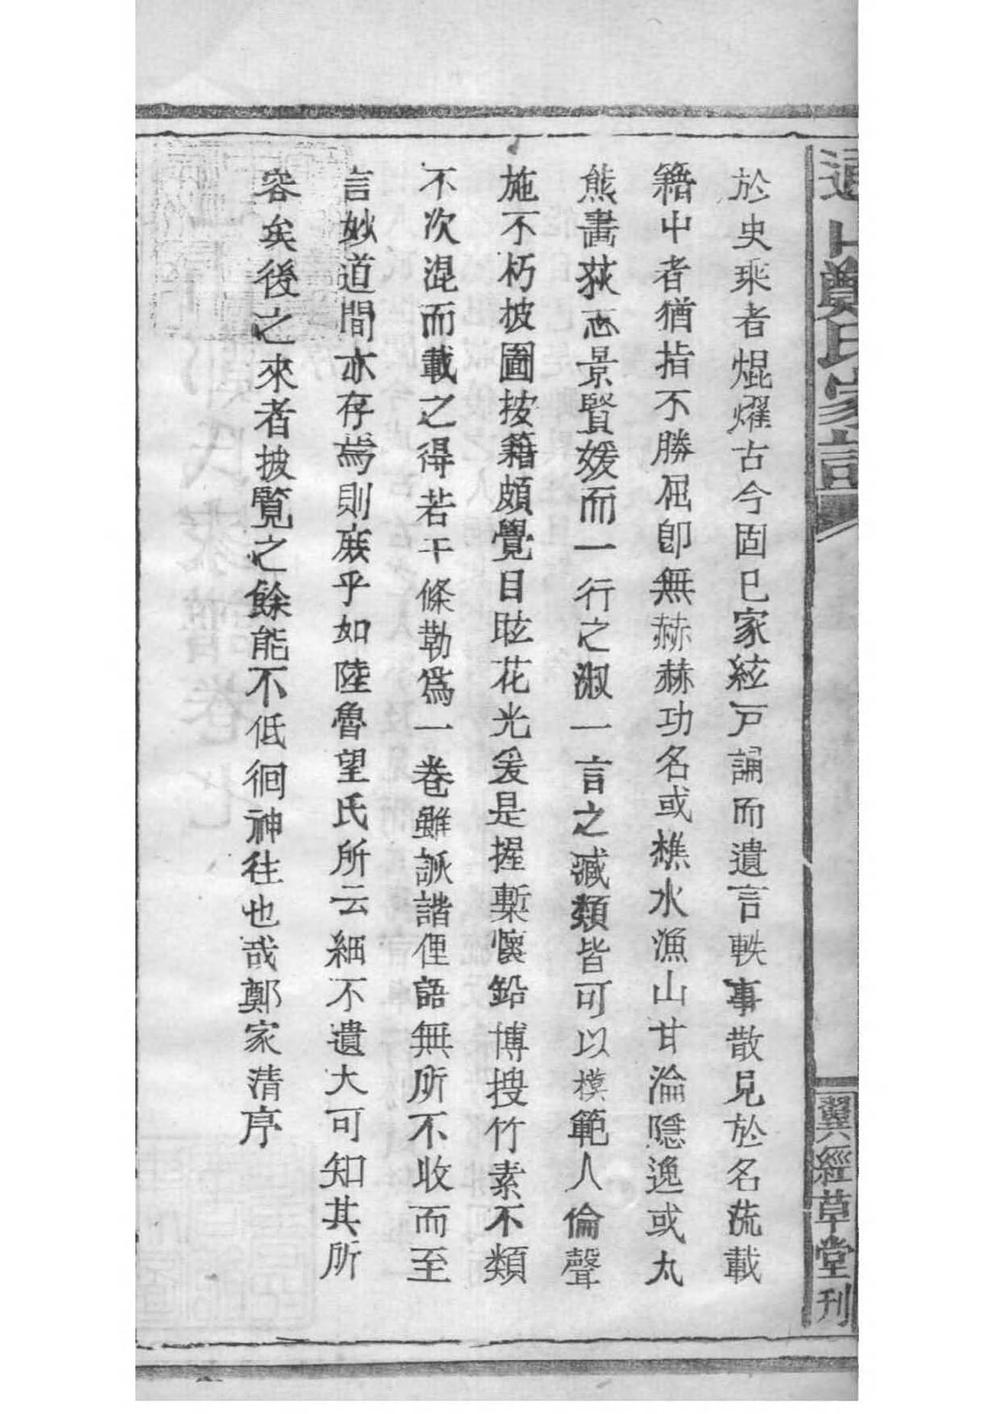 鄭氏家譜
翼經草堂刊
於史乘者焜燿古今固已家絃戸誦而遺言軼事散見於名流載
籍中者猶指不勝屈卽無赫赫功名或樵水漁山甘淪隱逸或丸
熊畵荻志景賢媛而一行之淑一言之臧類皆可以模範人倫聲
施不朽披圖按籍頗覺目眩花光爰是握槧懷鉛博搜竹素不類
不次混而載之得若干條勒爲一卷雖詼諧俚語無所不收而至
言妙道間亦存焉則庶乎如陸魯望氏所云細不遺大可知其所
容矣後之來者披覧之餘能不低徊神往也哉鄭家清序